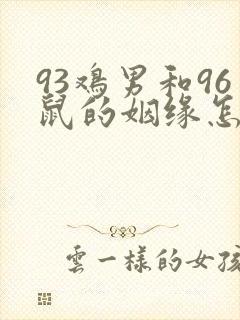 93鸡男和96
鼠的姻缘怎
雲一样的女孩